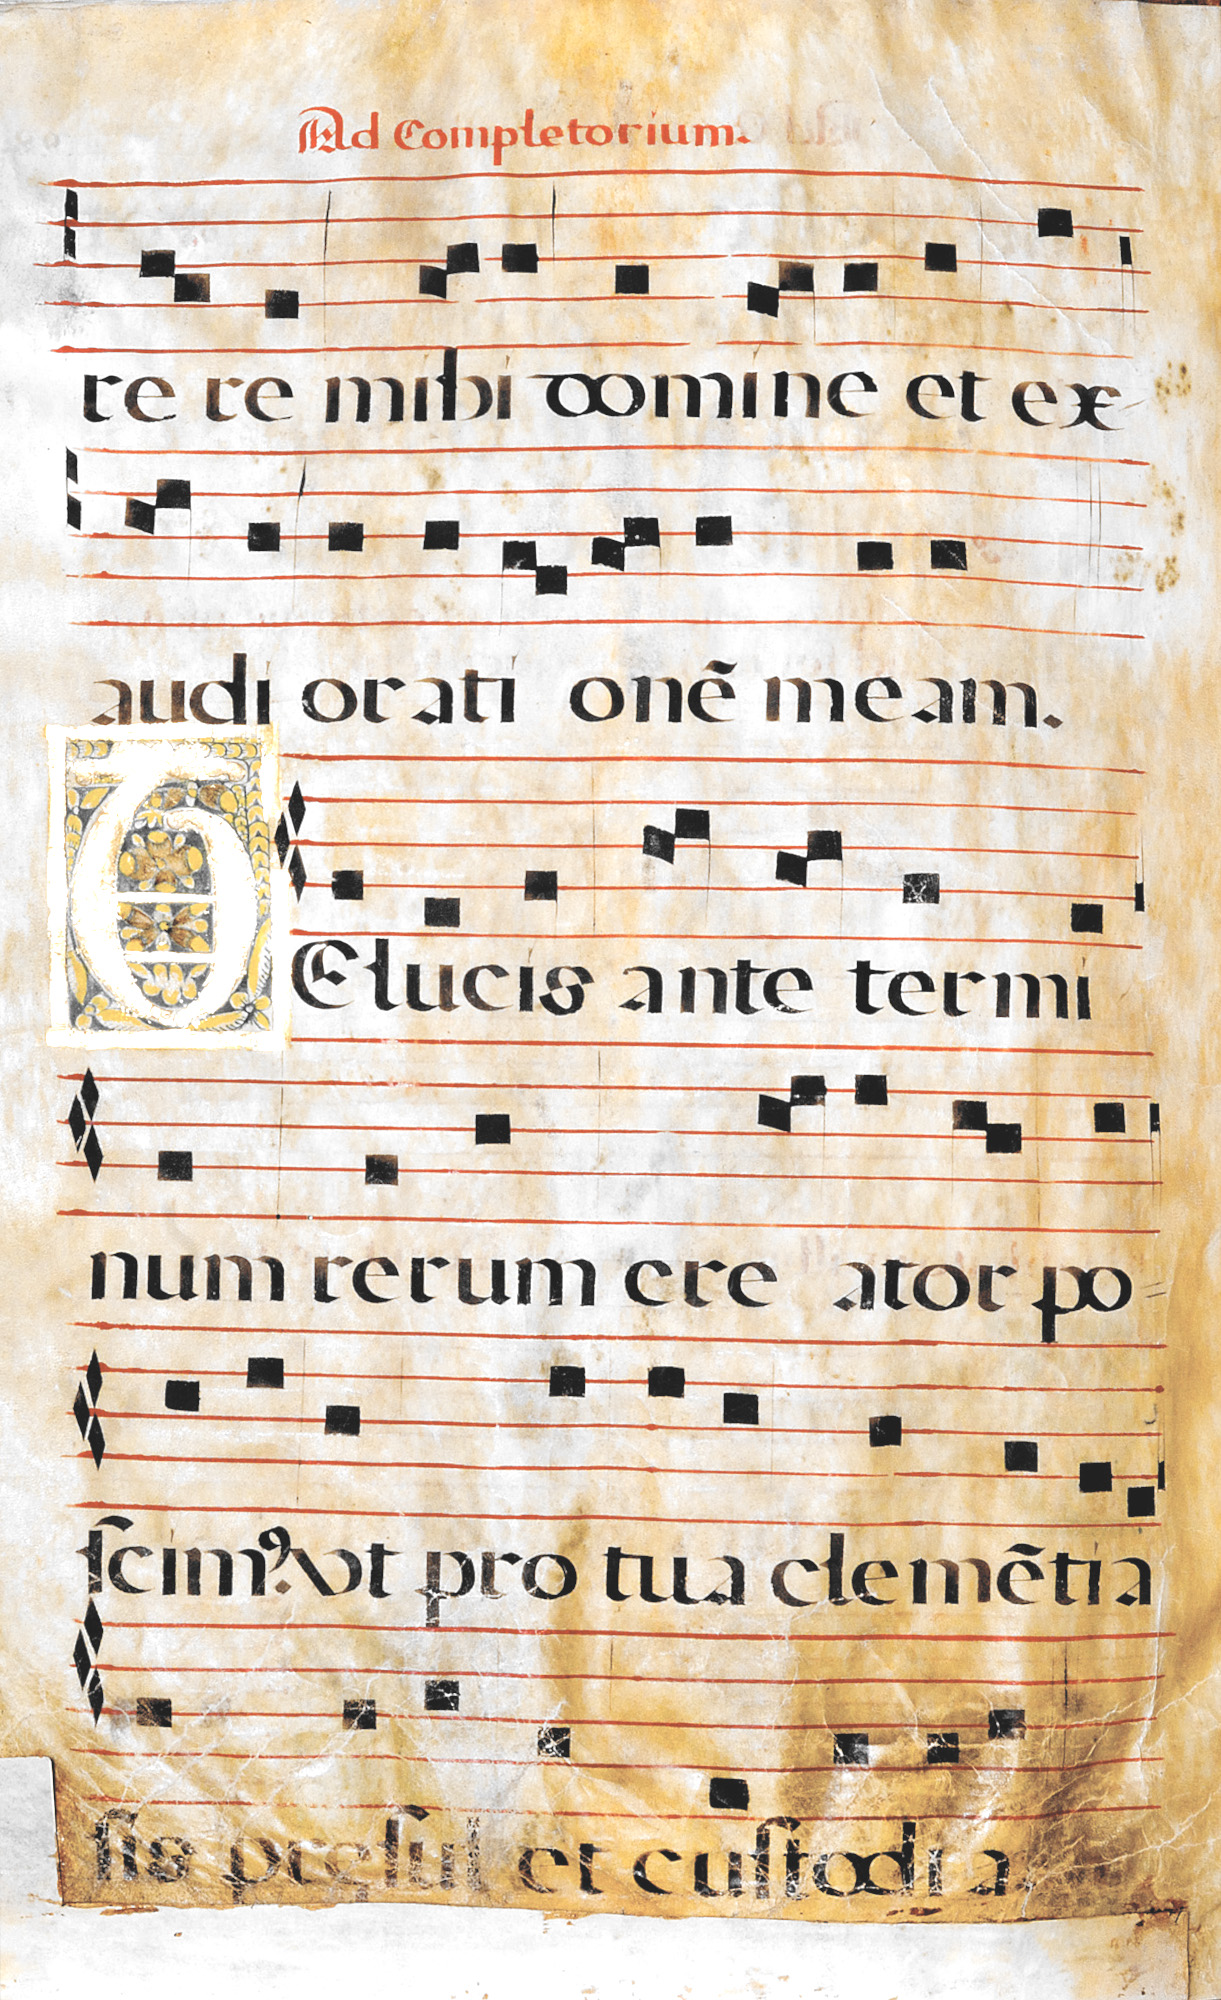 Ad Completorium.
re re mihi domine et ex-
audi orati onẽ meam.
TE lucis ante termi
num rerum cre ator po=
ſcimꝰ. vt pro tua clemẽtia
ſis preſul et cuſtodi a